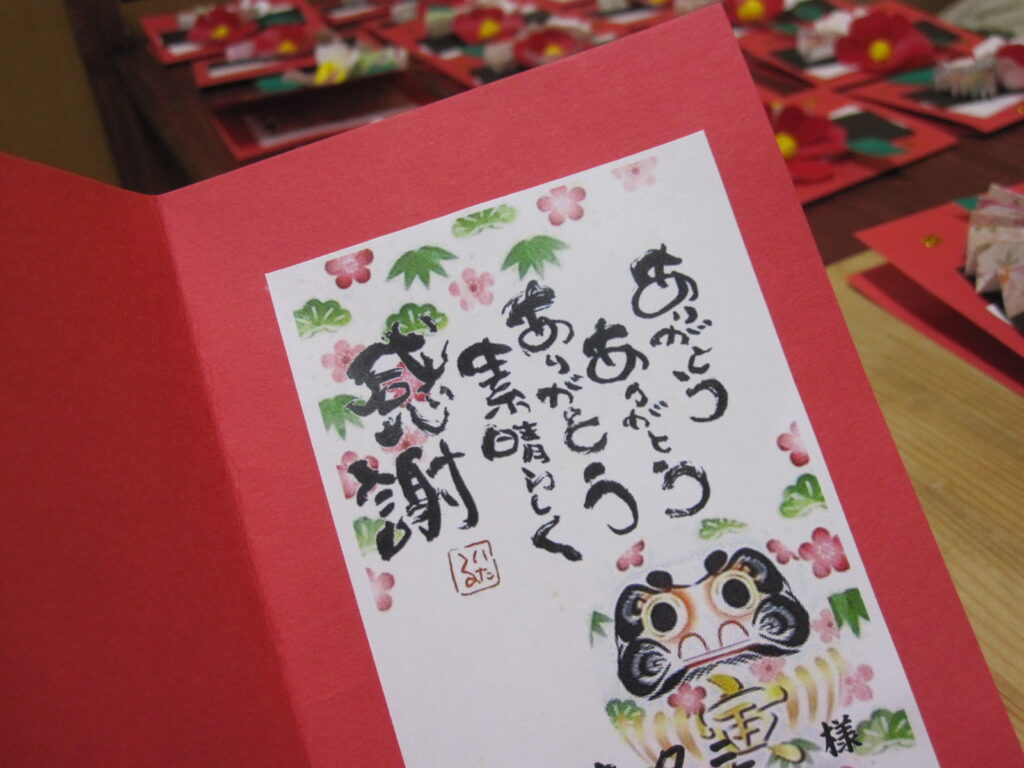 ありがとう
ありがとう
ありがとう
素晴らしく
感謝
様